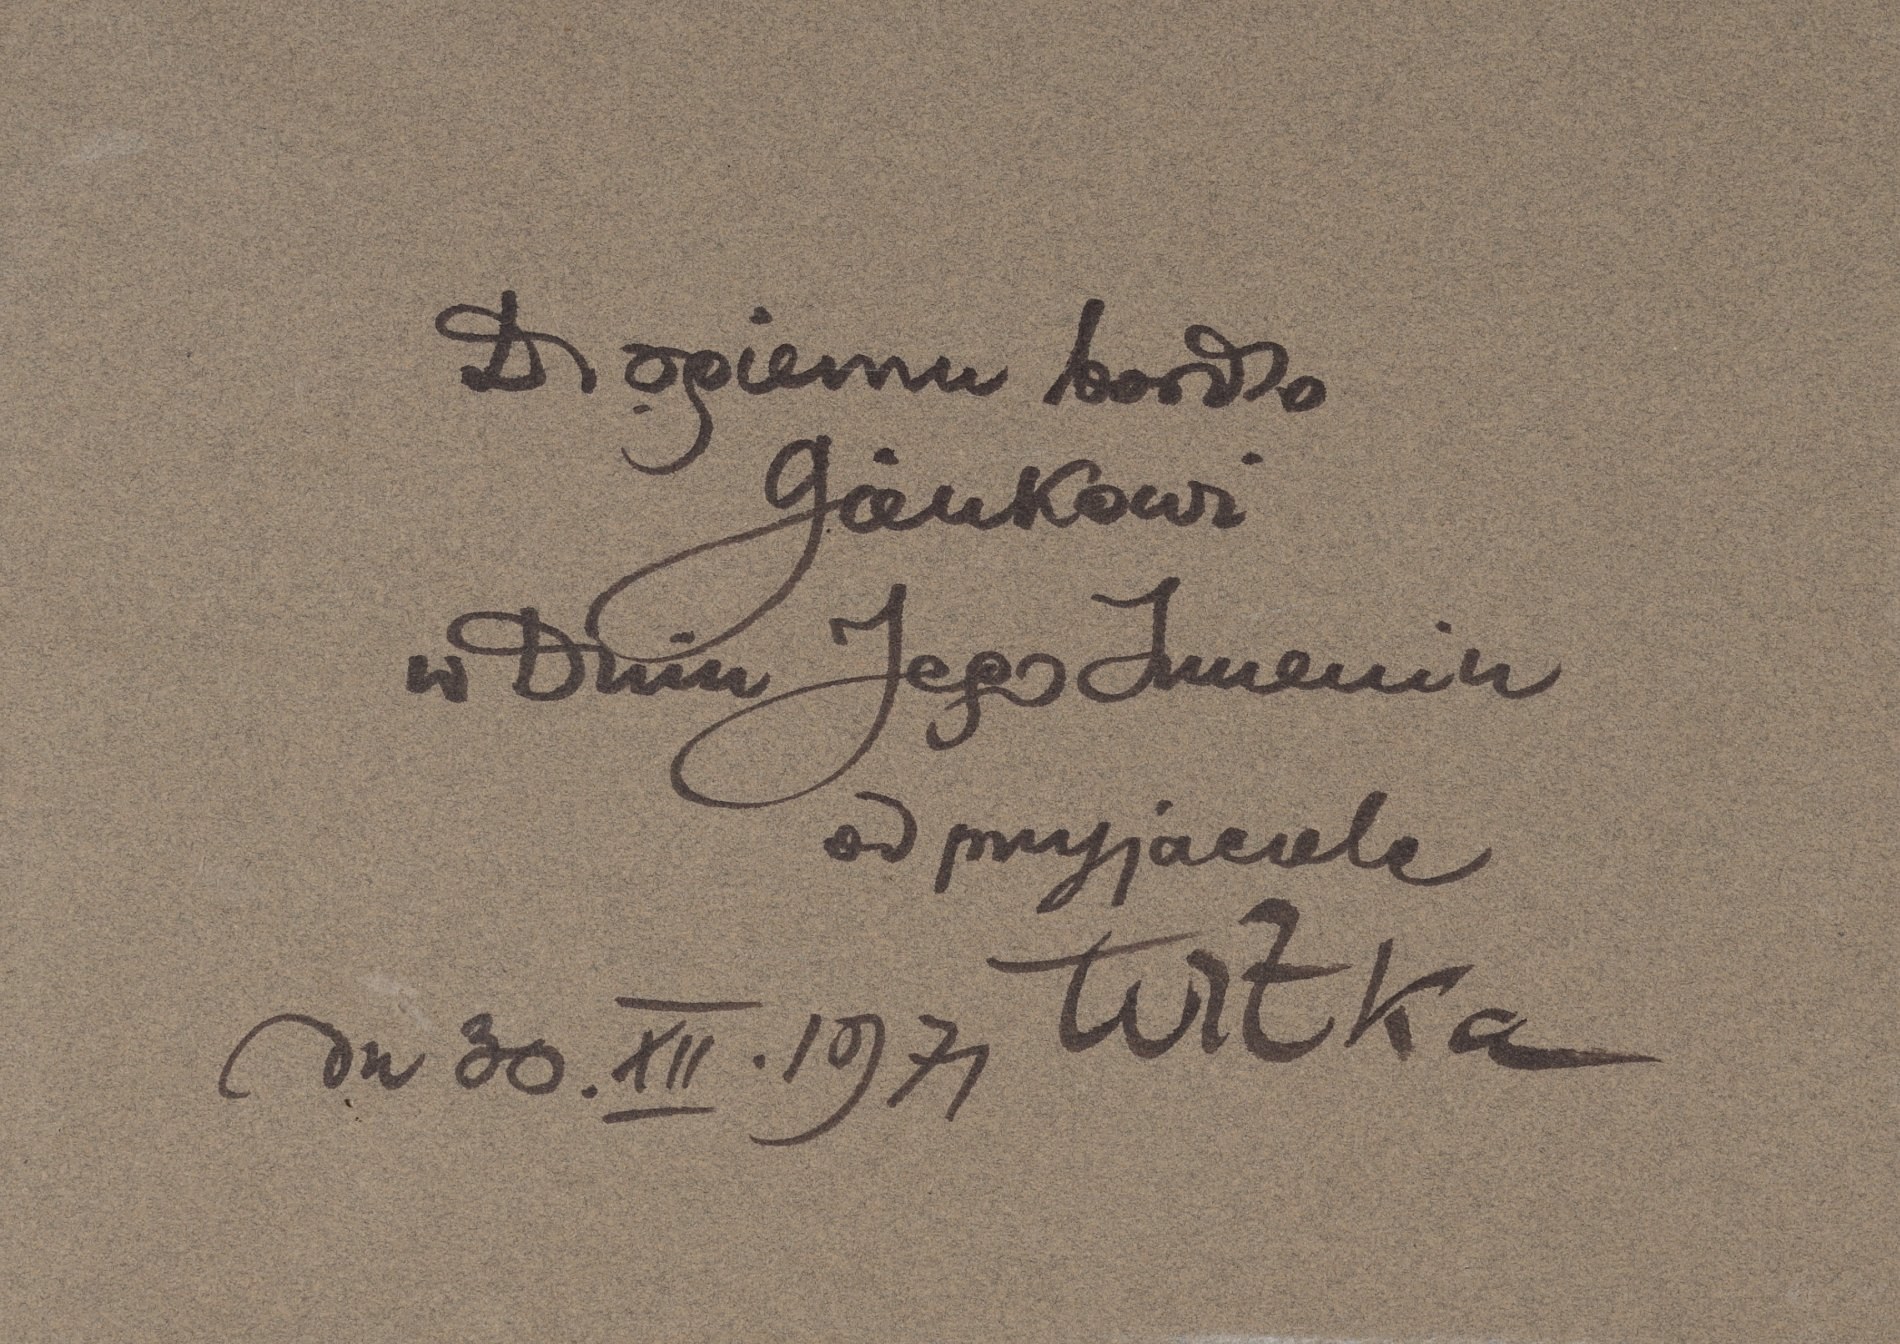 Drogiemu bardzo
Gienkowi
w Dniu Jego Imienin
od przyjaciela
Witka
dn 30.XII.1971